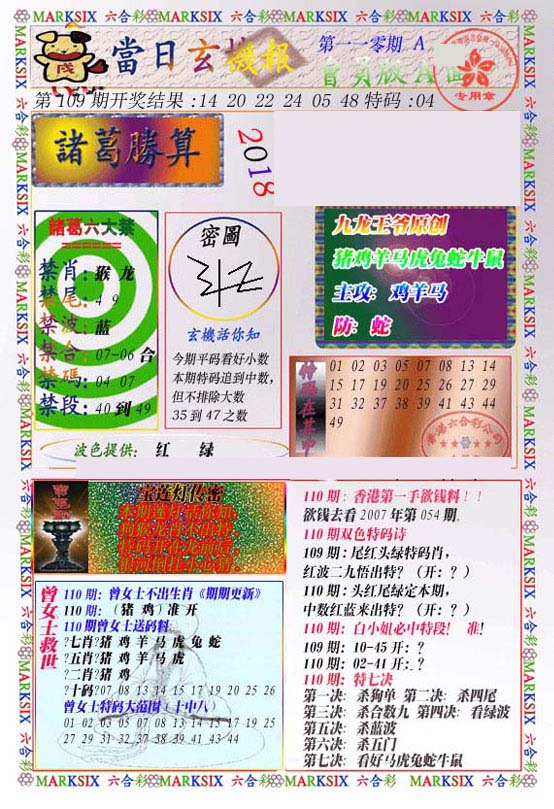 MARKSIX 六合彩 MARKSIX 六合彩 MARKSIX 六合彩 MARKSIX 六合彩
當日玄機報
第一一零期 A
會員版A面
专用章
第109期开奖结果:14 20 22 24 05 48特码:04
諸葛勝算
2018
諸葛六大禁
禁肖:猴 龙
禁尾:4 9
禁波:蓝
禁合:07-06 合
禁碼:04 07
禁段:40到49
密圖
玄機話你知
今期平码看好小数
本期特码追到中数,
但不排除大数
35 到 47 之数
九龙王爷原创
猪鸡羊马虎兔蛇牛鼠
主攻: 鸡羊马
防: 蛇
特码在其中
01 02 03 05 07 08 13 14
15 17 19 20 25 26 27 29
31 32 37 38 39 41 43 44
49
波色提供: 红 绿
宝莲灯传密
曾女士救世
110 期: 曾女士不出生肖《期期更新》
110 期: (猪 鸡) 准 开
110 期曾女士送码料:
?七肖?猪 鸡 羊 马 虎 兔 蛇
?五肖?猪 鸡 羊 马 虎
?二肖?猪 鸡
?十码?07 08 13 14 15 17 19 20 25 26
曾女士特码大范围 (十中八)
01 02 03 05 07 08 13 14 15 17 19 25
27 29 31 32 37 38 39 41 43 44
110 期: 香港第一手欲钱料!!
欲钱去看 2007 年第 054 期.
110 期双色特码诗
109 期: 尾红头绿特码肖,
红波二九悟出特? (开: ?)
110 期: 头红尾绿定本期,
中数红蓝来出特? (开: ?)
110 期: 白小姐必中特段! 准!
109 期: 10-45 开: ?
110 期: 02-41 开: ?
110 期: 特七决
第一决: 杀狗单 第二决: 杀四尾
第三决: 杀合数九 第四决: 看绿波
第五决: 杀蓝波
第六决: 杀五门
第七决: 看好马虎兔蛇牛鼠
MARKSIX 六合彩 MARKSIX 六合彩 MARKSIX 六合彩 MARKSIX 六合彩